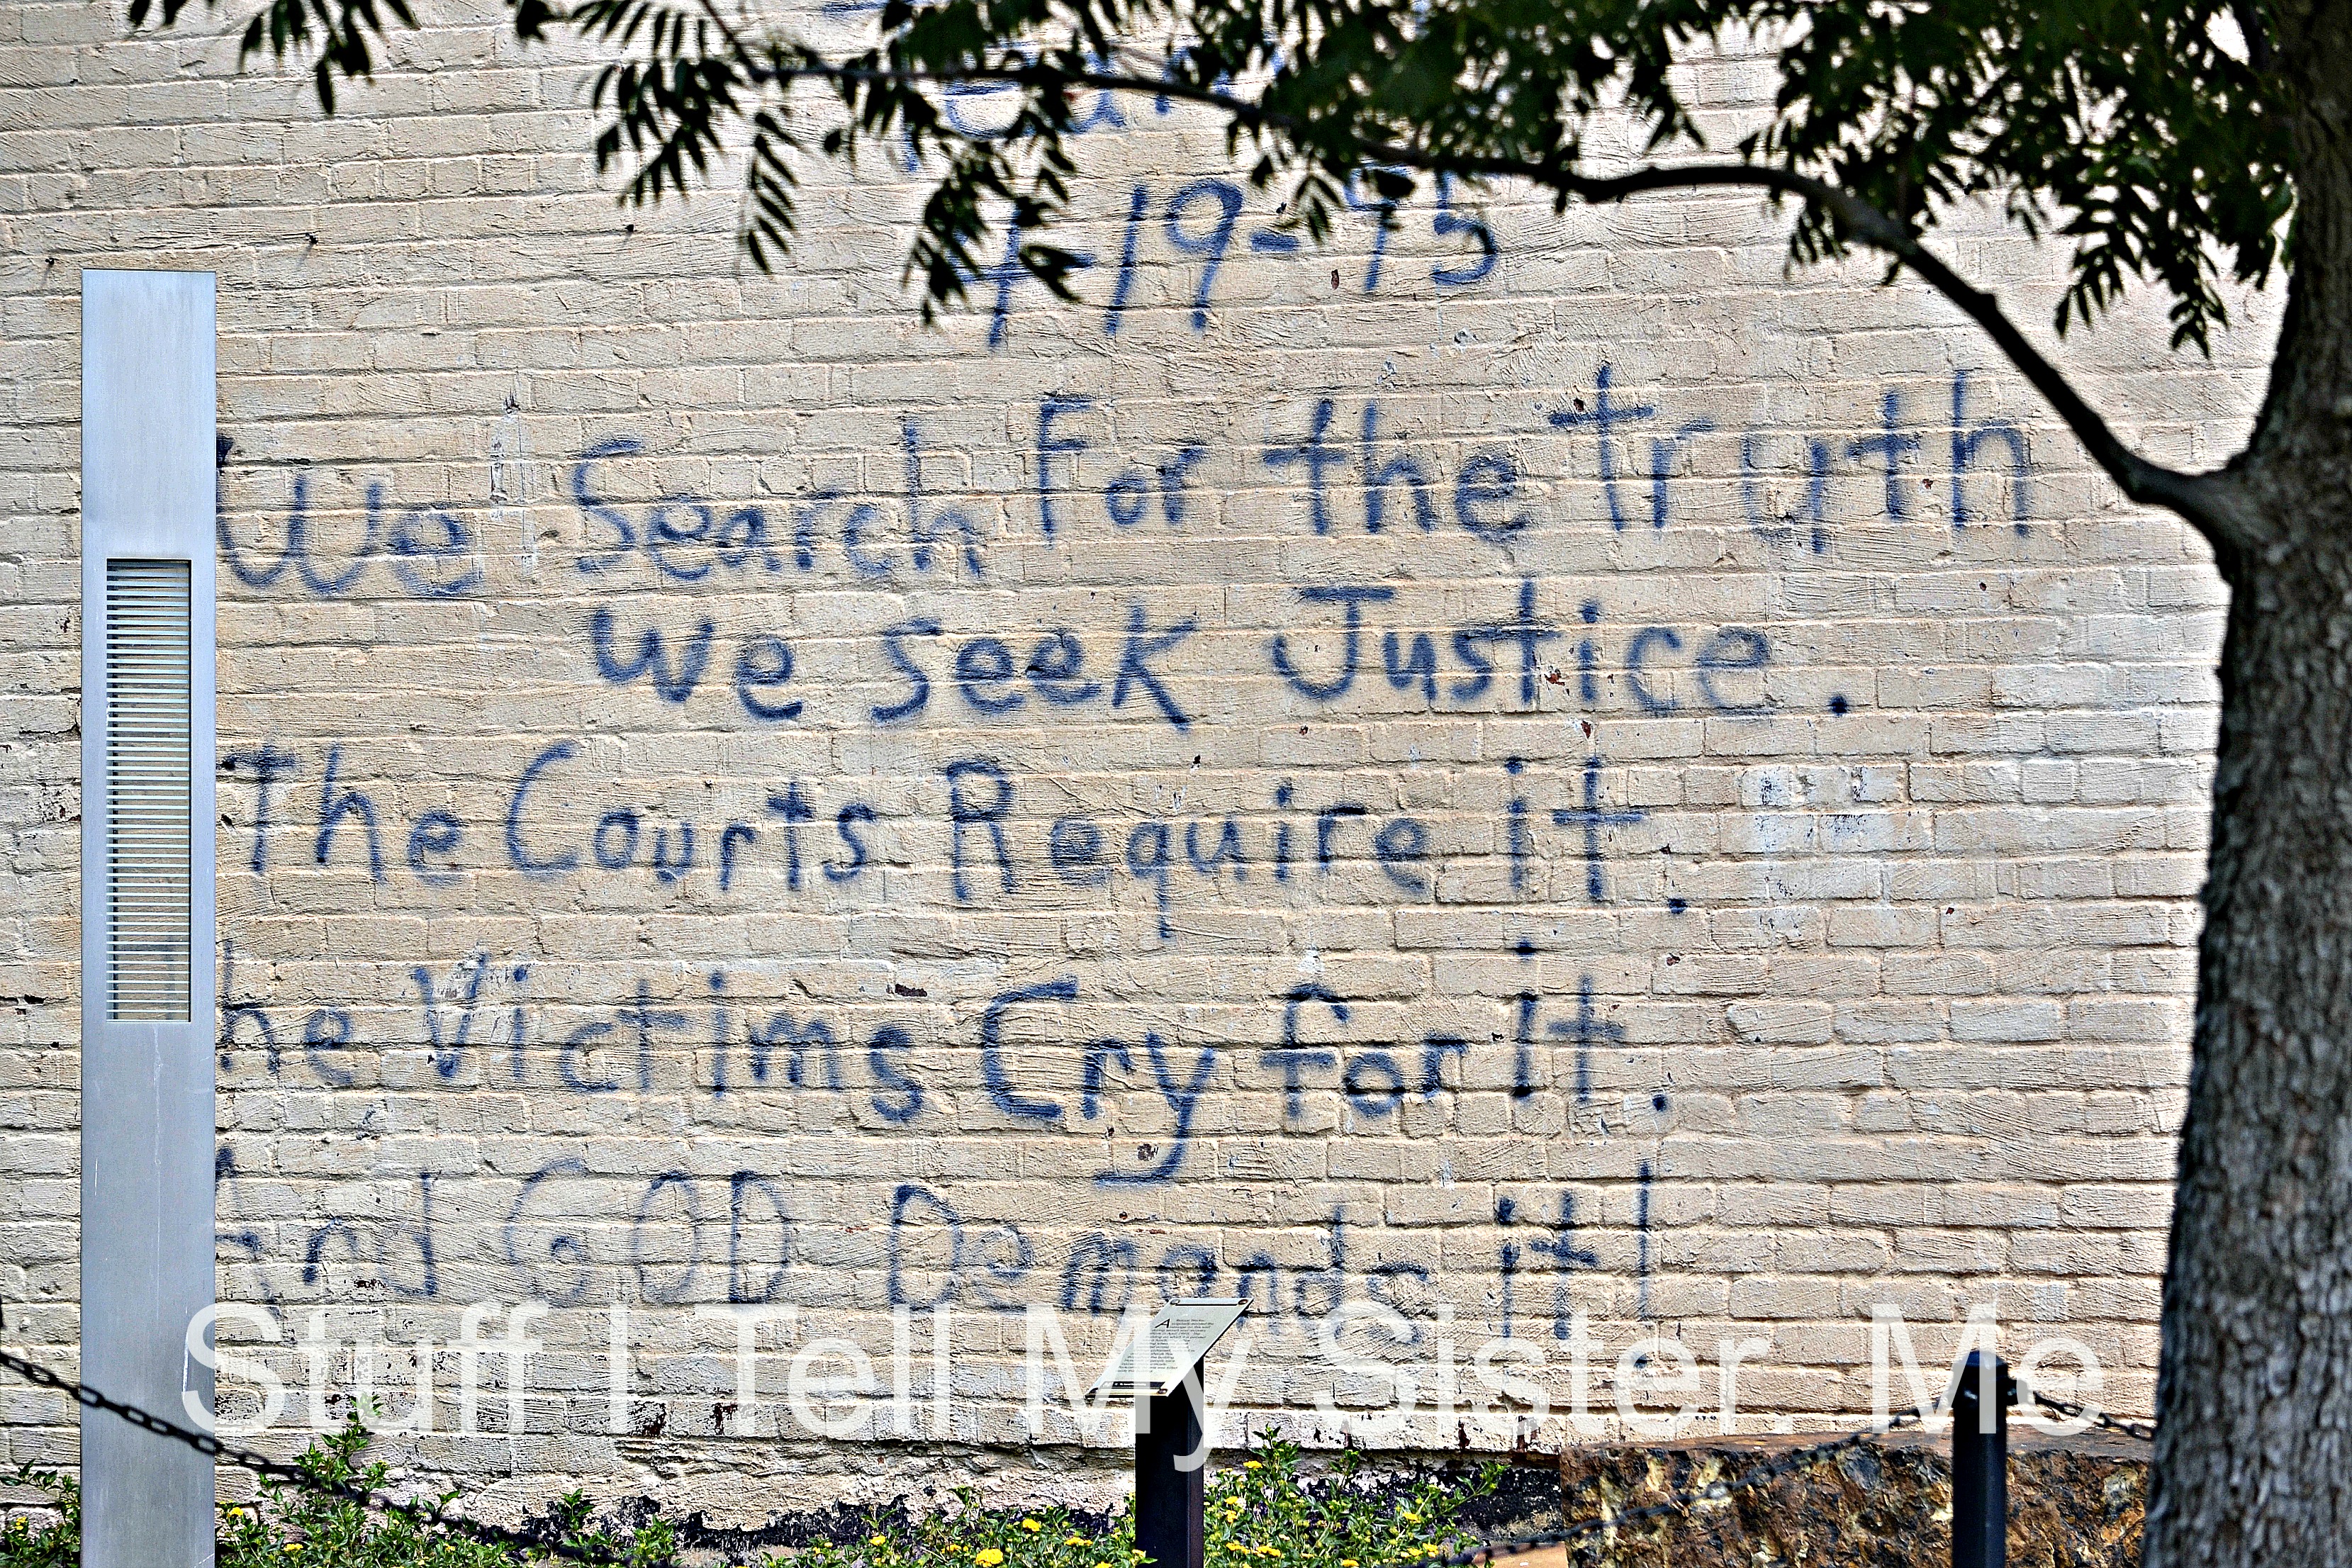 4-19-95
We Search For the truth
We Seek Justice.
The Courts Require it.
he Victims Cry for it.
And GOD Demands it!
Stuff I Tell My Sister. Me